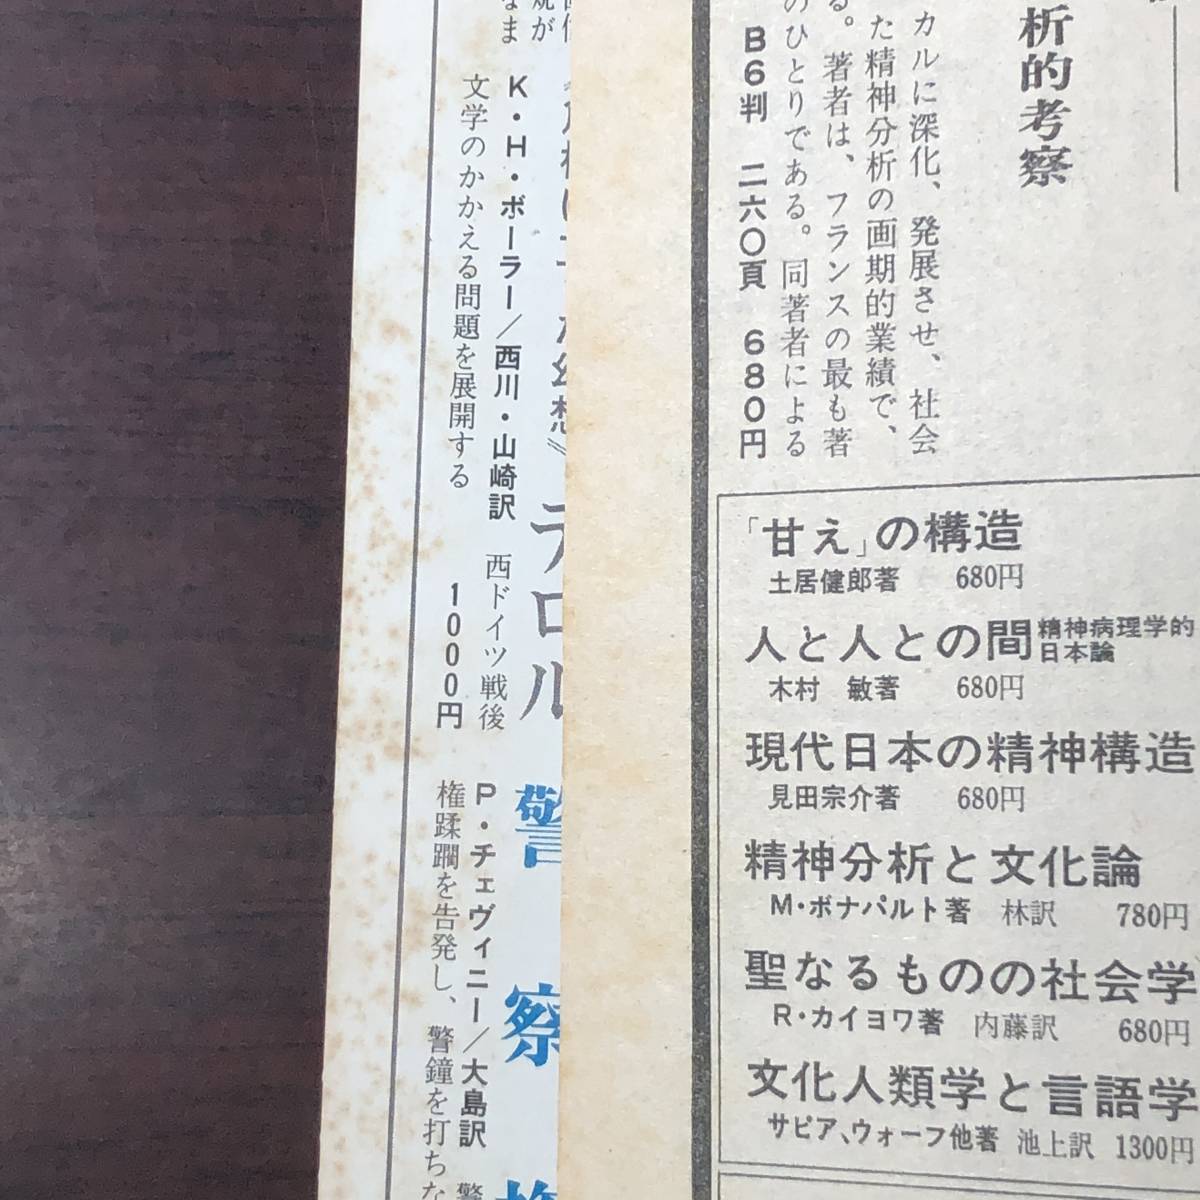 析的考察
カルに深化、発展させ、社会
た精神分析の画期的業績で、
る。著者は、フランスの最も著
のひとりである。同著者による
B6判 二六〇頁 680円
「甘え」の構造
土居健郎著 680円
人と人との間 精神病理学的日本論
木村 敏著 680円
現代日本の精神構造
見田宗介著 680円
精神分析と文化論
M・ボナパルト著 林訳 780円
聖なるものの社会学
R・カイヨワ著 内藤訳 680円
文化人類学と言語学
サピア、ウォーフ他著 池上訳 1300円
幻想》テロル
K・H・ボーラー/西川・山崎訳 西ドイツ戦後
文学のかかえる問題を展開する 1000円
警察
P・チェヴィニー/大島訳 警
権蹂躙を告発し、警鐘を打ちな